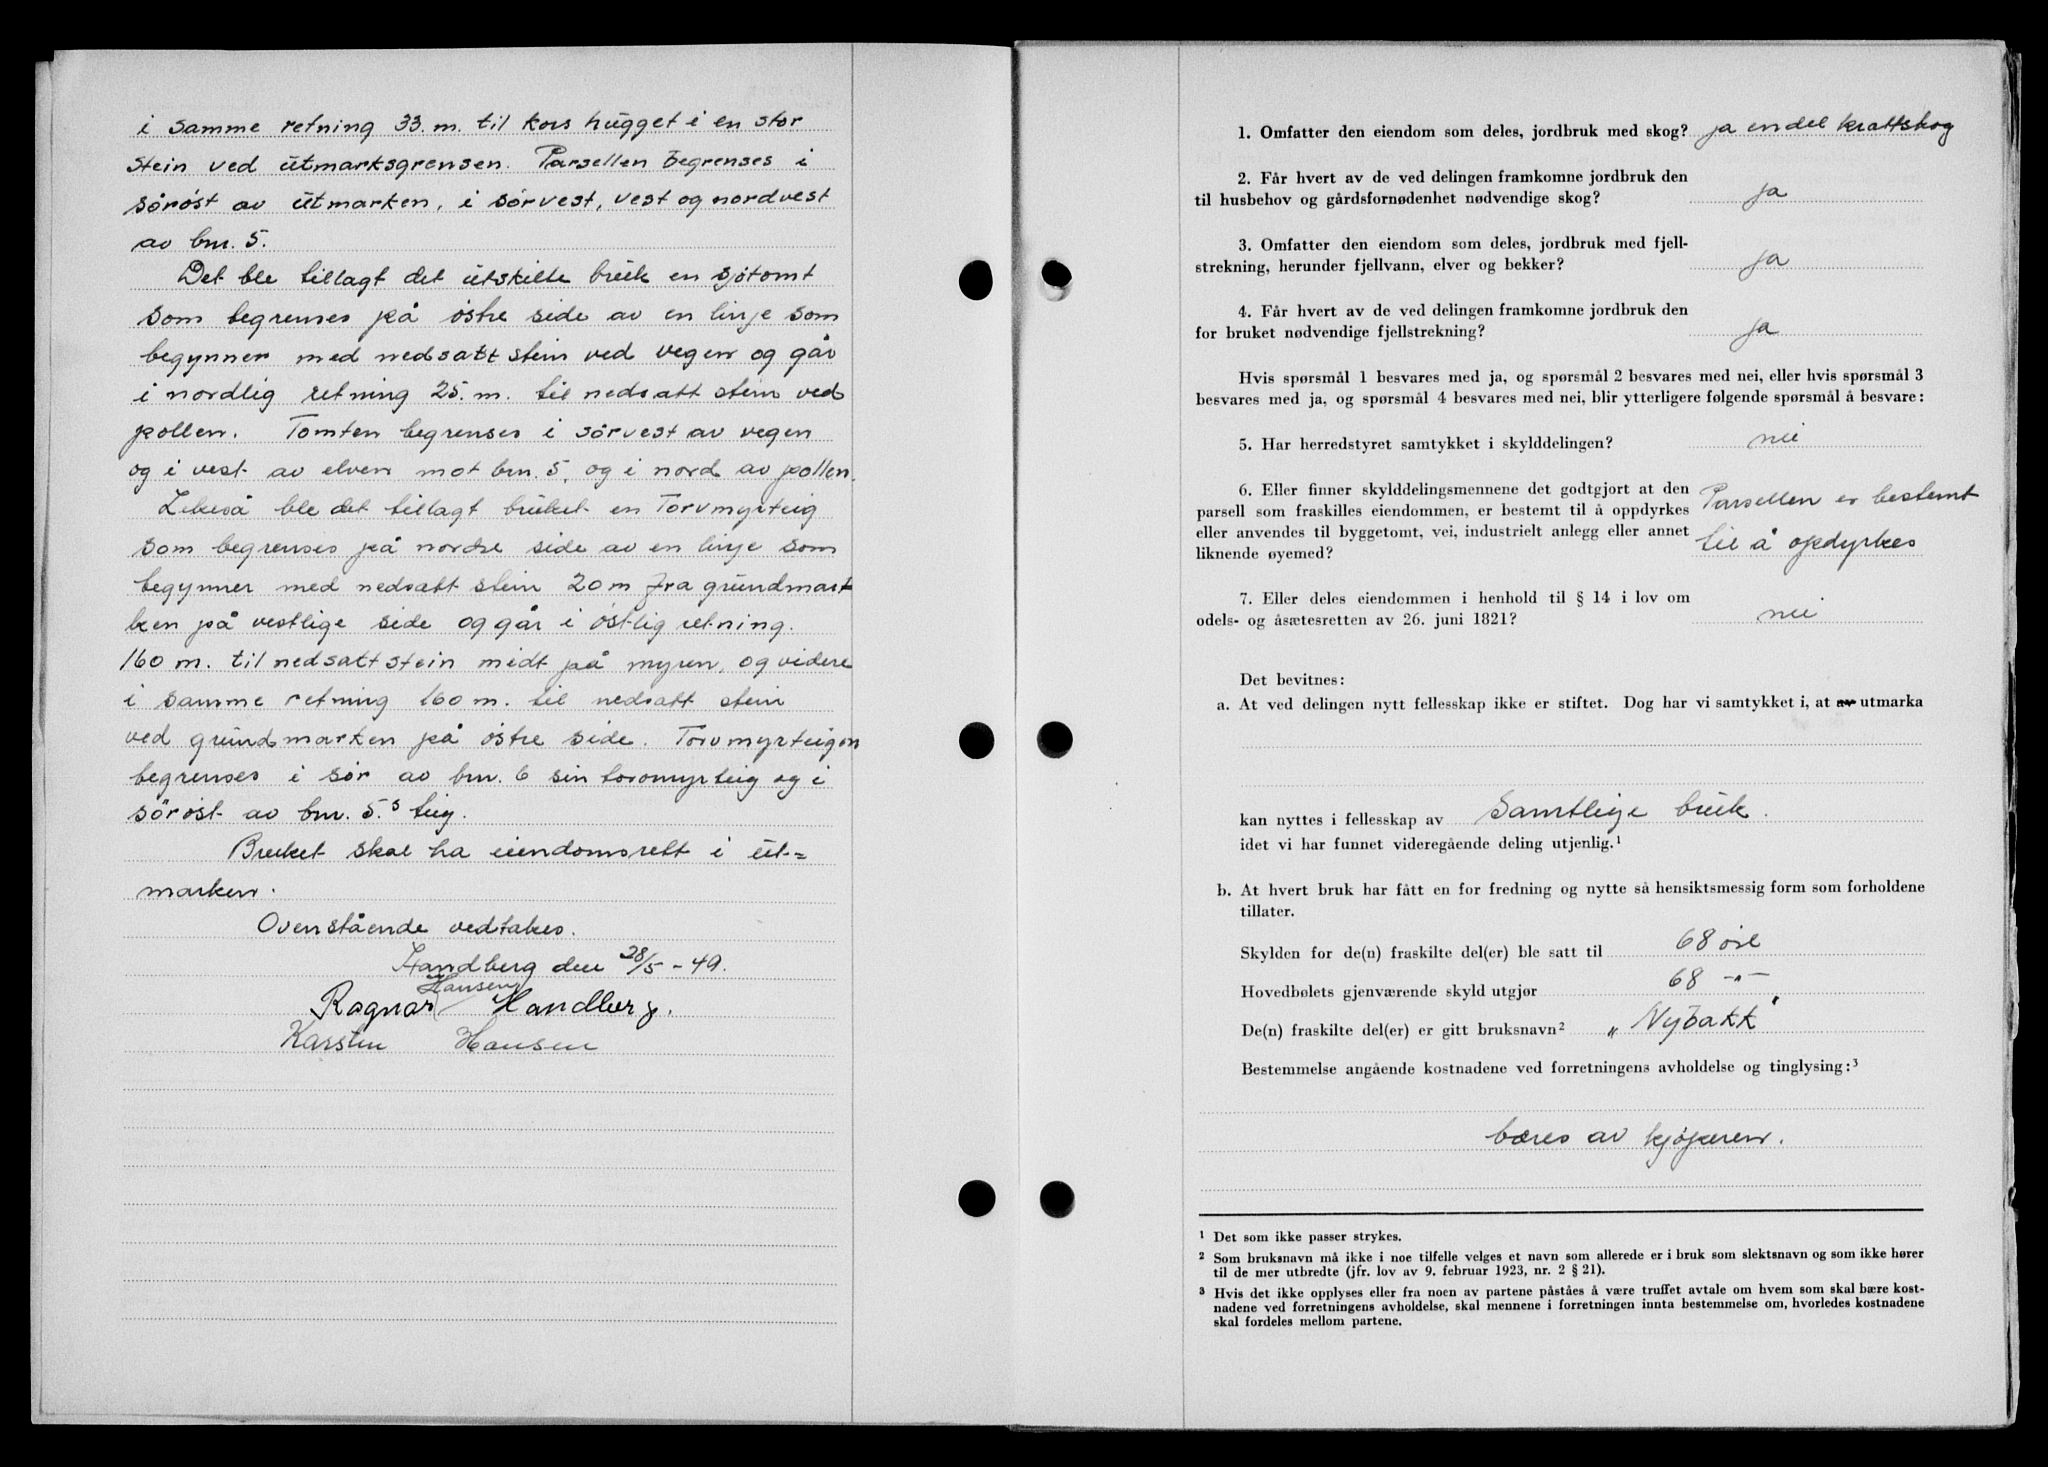 i samme retning 33. m. til kors hugget i en stor
stein ved utmarksgrensen. Parsellen begrenses i
sørøst av utmarken, i sørvest, vest og nordvest
av bnr. 5.
Det ble tillagt det utskilte bruk en sjøtomt
som begrenses på østre side av en linje som
begynner med nedsatt stein ved vegen og går
i nordlig retning 25. m. til nedsatt stein ved
pollen. Tomten begrenses i sørvest av vegen
og i vest av elven mot bnr. 5, og i nord av pollen.
Likeså ble det tillagt bruket en Torvmyrteig
som begrenses på nordre side av en linje som
begynner med nedsatt stein 20 m fra grundmar
ken på vestlige side og går i østlig retning.
160 m. til nedsatt stein midt på myren, og videre
i samme retning 160 m. til nedsatt stein
ved grundmarken på østre side. Torvmyrteigen
begrenses i sør av bnr. 6 sin torvmyrteig og i
sørøst av bnr. 5.s teig.
Bruket skal ha eiendomsrett i ut=
marken.
Ovenstående vedtakes.
Handberg den 28/5 - 49.
Hansen
Ragnar / Handberg.
Karsten Hansen
1. Omfatter den eiendom som deles, jordbruk med skog? ja endel krattskog
2. Får hvert av de ved delingen framkomne jordbruk den
til husbehov og gårdsfornødenhet nødvendige skog? ja
3. Omfatter den eiendom som deles, jordbruk med fjell-
strekning, herunder fjellvann, elver og bekker? ja
4. Får hvert av de ved delingen framkomne jordbruk den
for bruket nødvendige fjellstrekning? ja
Hvis spørsmål 1 besvares med ja, og spørsmål 2 besvares med nei, eller hvis spørsmål 3
besvares med ja, og spørsmål 4 besvares med nei, blir ytterligere følgende spørsmål å besvare:
5. Har herredstyret samtykket i skylddelingen? nei
6. Eller finner skylddelingsmennene det godtgjort at den
parsell som fraskilles eiendommen, er bestemt til å oppdyrkes Parsellen er bestemt
eller anvendes til byggetomt, vei, industrielt anlegg eller annet
liknende øyemed? til å opdyrkes
7. Eller deles eiendommen i henhold til § 14 i lov om
odels- og åsætesretten av 26. juni 1821? nei
Det bevitnes:
a. At ved delingen nytt fellesskap ikke er stiftet. Dog har vi samtykket i, at av utmarka
kan nyttes i fellesskap av Samtlige bruk.
idet vi har funnet videregående deling utjenlig.¹
b. At hvert bruk har fått en for fredning og nytte så hensiktsmessig form som forholdene
tillater.
Skylden for de(n) fraskilte del(er) ble satt til 68 øre
Hovedbølets gjenværende skyld utgjør 68 -"-
De(n) fraskilte del(er) er gitt bruksnavn² „Nybakk"
Bestemmelse angående kostnadene ved forretningens avholdelse og tinglysing:³
bæres av kjøperen.
¹ Det som ikke passer strykes.
² Som bruksnavn må ikke i noe tilfelle velges et navn som allerede er i bruk som slektsnavn og som ikke hører
til de mer utbredte (jfr. lov av 9. februar 1923, nr. 2 § 21).
³ Hvis det ikke opplyses eller fra noen av partene påståes å være truffet avtale om hvem som skal bære kost-
nadene ved forretningens avholdelse, skal mennene i forretningen innta bestemmelse om, hvorledes kostnadene
skal fordeles mellom partene.